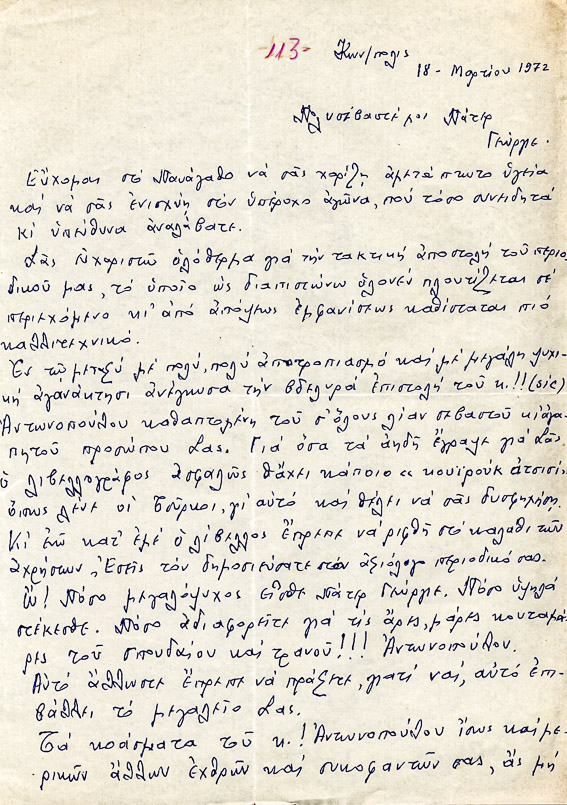 -113-
Κων/πολις
18 - Μαρτίου 1972
Πολυσέβαστέ μοι Πάτερ
Γεώργιε.
Εὔχομαι στό Πανάγαθο νά σᾶς χαρίζῃ ἀμετάπτωτο ὑγεία
καί νά σᾶς ἐνισχύῃ στόν ὑπέροχο ἀγῶνα, πού τόσο συνειδητά
κι ὑπεύθυνα ἀναλάβατε.
Σᾶς εὐχαριστῶ ὁλόθερμα γιά τήν τακτική ἀποστολή τοῦ περιο
δικοῦ μας, τό ὁποῖο ὡς διαπιστώνω ὁλονέν πλουτίζεται σέ
περιεχόμενο κι' ἀπό ἀπόψεως ἐμφανίσεως καθίσταται πιό
καλλιτεχνικό.
Ἐν τῷ μεταξύ μέ πολύ, πολύ ἀποτροπιασμό καί μέ μεγάλη ψυχι-
κή ἀγανάκτησι ἀνέγνωσα τήν βδελυρά ἐπιστολή τοῦ κ.!! (sic)
Ἀντωνοπούλου καθαπτομένη τοῦ σ' ὅλους λίαν σεβαστοῦ κι' ἀγα-
πητοῦ προσώπου Σας. Γιά ὅσα τά ἀηδῆ ἔγραψε γιά Σᾶς
ὁ λιβελλογράφος ἀσφαλῶς θἄχει κάποιο « κουϊρούκ ἀτσισί»
ὅπως λένε οἱ Τοῦρκοι, γι' αὐτό καί θέλει νά σᾶς δυσφημήσῃ.
Κι ἐνῶ κατ' ἐμέ ὁ λίβελλος ἔπρεπε νά ριφθῇ στό καλάθι τῶν
ἀχρήστων, Ἐσεῖς τόν δημοσιεύσατε στό ἀξιόλογο περιοδικό σας.
Ὤ! Πόσο μεγαλόψυχος εἶσθε Πάτερ Γεώργιε. Πόσο ὑψηλά
στέκεσθε. Πόσο ἀδιαφορεῖτε γιά τίς ἄρες, μάρες κουταμά-
ρες τοῦ σπουδαίου καί τρανοῦ!!! Ἀντωνοπούλου.
Αὐτό ἄλλωστε ἔπρεπε νά πράξετε, γιατί ναί, αὐτό ἐπι-
βάλλει τό μεγαλεῖο Σας.
Τά κοάσματα τοῦ κ.! Ἀντωνοπούλου ἴσως καί με-
ρικῶν ἄλλων ἐχθρῶν καί συκοφαντῶν σας, ἄς μή